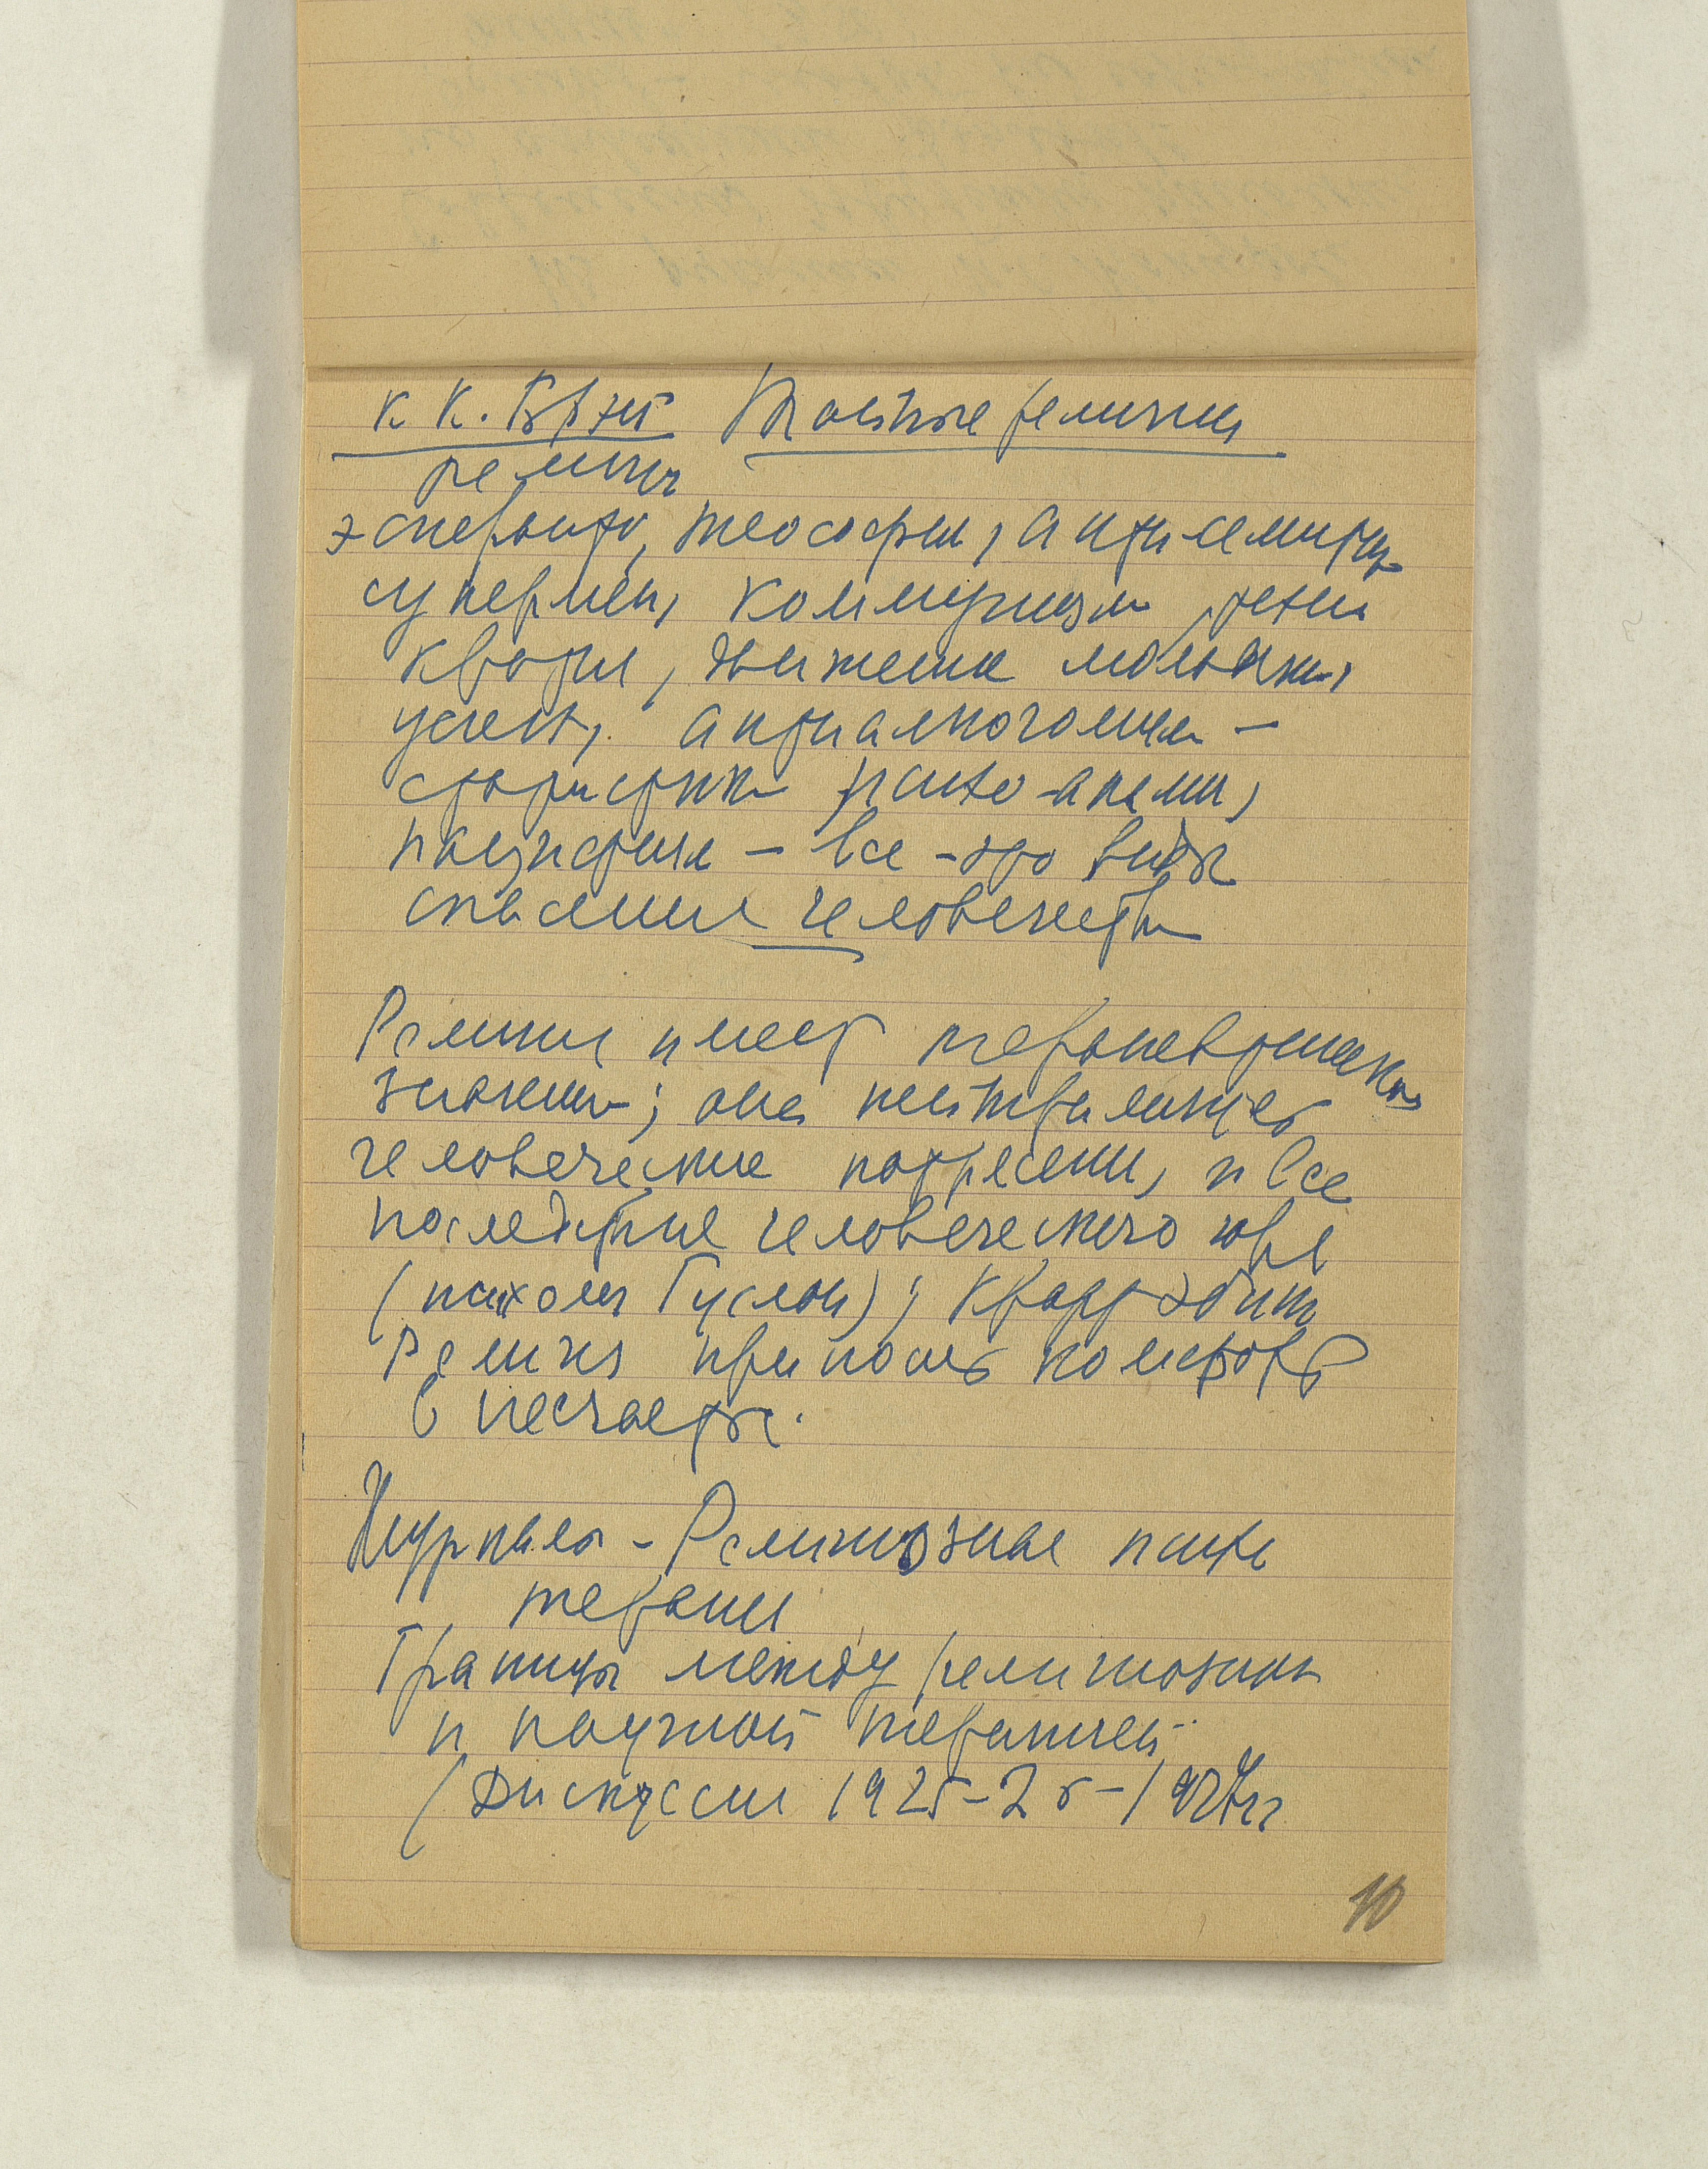 К К. Брэй Тайные религии
религия
эсперанто, теософия, антисемитизм
супермен, коммунизм, дети
кварты, движение молодежи,
успех, антиалкоголизм –
статистики психо-анализ,
пацифизм – все – это виды
спасения человечества
Религия имеет терапевтическое
значение; она нейтрализует
человеческие потрясения, и все
последствия человеческого горя
(психолог Гуслон);
Религия приносит комфорт
в несчастье.
Журналы – Религиозная психо
терапия
Границы между религиозной
и научной терапией
(Дискуссии 1925–26–1927 гг
10